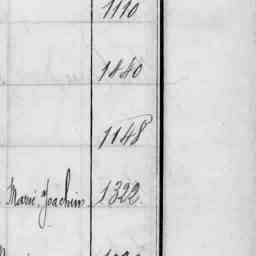 1110
1840
1148
Marie, Joachim 1322.